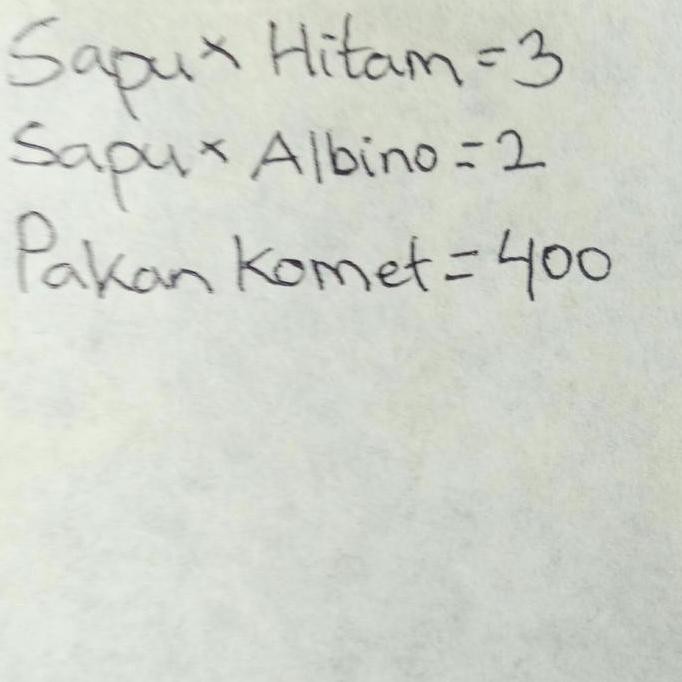 Sapu× Hitam = 3
Sapu× Albino = 2
Pakan Komet = 400